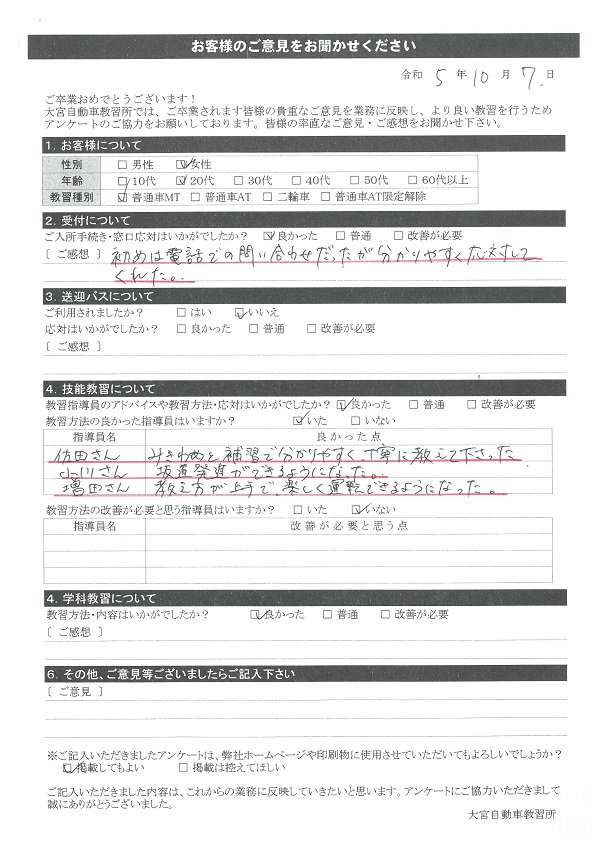 お客様のご意見をお聞かせください
令和 5 年 10 月 7 日
ご卒業おめでとうございます！
大宮自動車教習所では、ご卒業されます皆様の貴重なご意見を業務に反映し、より良い教習を行うため
アンケートのご協力をお願いしております。皆様の率直なご意見・ご感想をお聞かせ下さい。
1. お客様について
性別 □ 男性 ☑ 女性
年齢 □ 10代 ☑ 20代 □ 30代 □ 40代 □ 50代 □ 60代以上
教習種別 ☑ 普通車MT □ 普通車AT □ 二輪車 □ 普通車AT限定解除
2. 受付について
ご入所手続き・窓口応対はいかがでしたか？ ☑ 良かった □ 普通 □ 改善が必要
〔 ご感想 〕 初めは電話での問い合わせだったが分かりやすく応対して
くれた。
3. 送迎バスについて
ご利用されましたか？ □ はい ☑ いいえ
応対はいかがでしたか？ □ 良かった □ 普通 □ 改善が必要
〔 ご感想 〕
4. 技能教習について
教習指導員のアドバイスや教習方法・応対はいかがでしたか？ ☑ 良かった □ 普通 □ 改善が必要
教習方法の良かった指導員はいますか？ ☑ いた □ いない
指導員名 良かった点
佐田さん みきわめと補習で分かりやすく丁寧に教えて下さった
小川さん 坂道発進ができるようになった。
増田さん 教え方が上手で、楽しく運転できるようになった。
教習方法の改善が必要と思う指導員はいますか？ □ いた ☑ いない
指導員名 改善が必要と思う点
4. 学科教習について
教習方法・内容はいかがでしたか？ ☑ 良かった □ 普通 □ 改善が必要
〔 ご感想 〕
6. その他、ご意見等ございましたらご記入下さい
〔 ご意見 〕
※ご記入いただきましたアンケートは、弊社ホームページや印刷物に使用させていただいてもよろしいでしょうか？
☑ 掲載してもよい □ 掲載は控えてほしい
ご記入いただきました内容は、これからの業務に反映していきたいと思います。アンケートにご協力いただきまして
誠にありがとうございました。
大宮自動車教習所